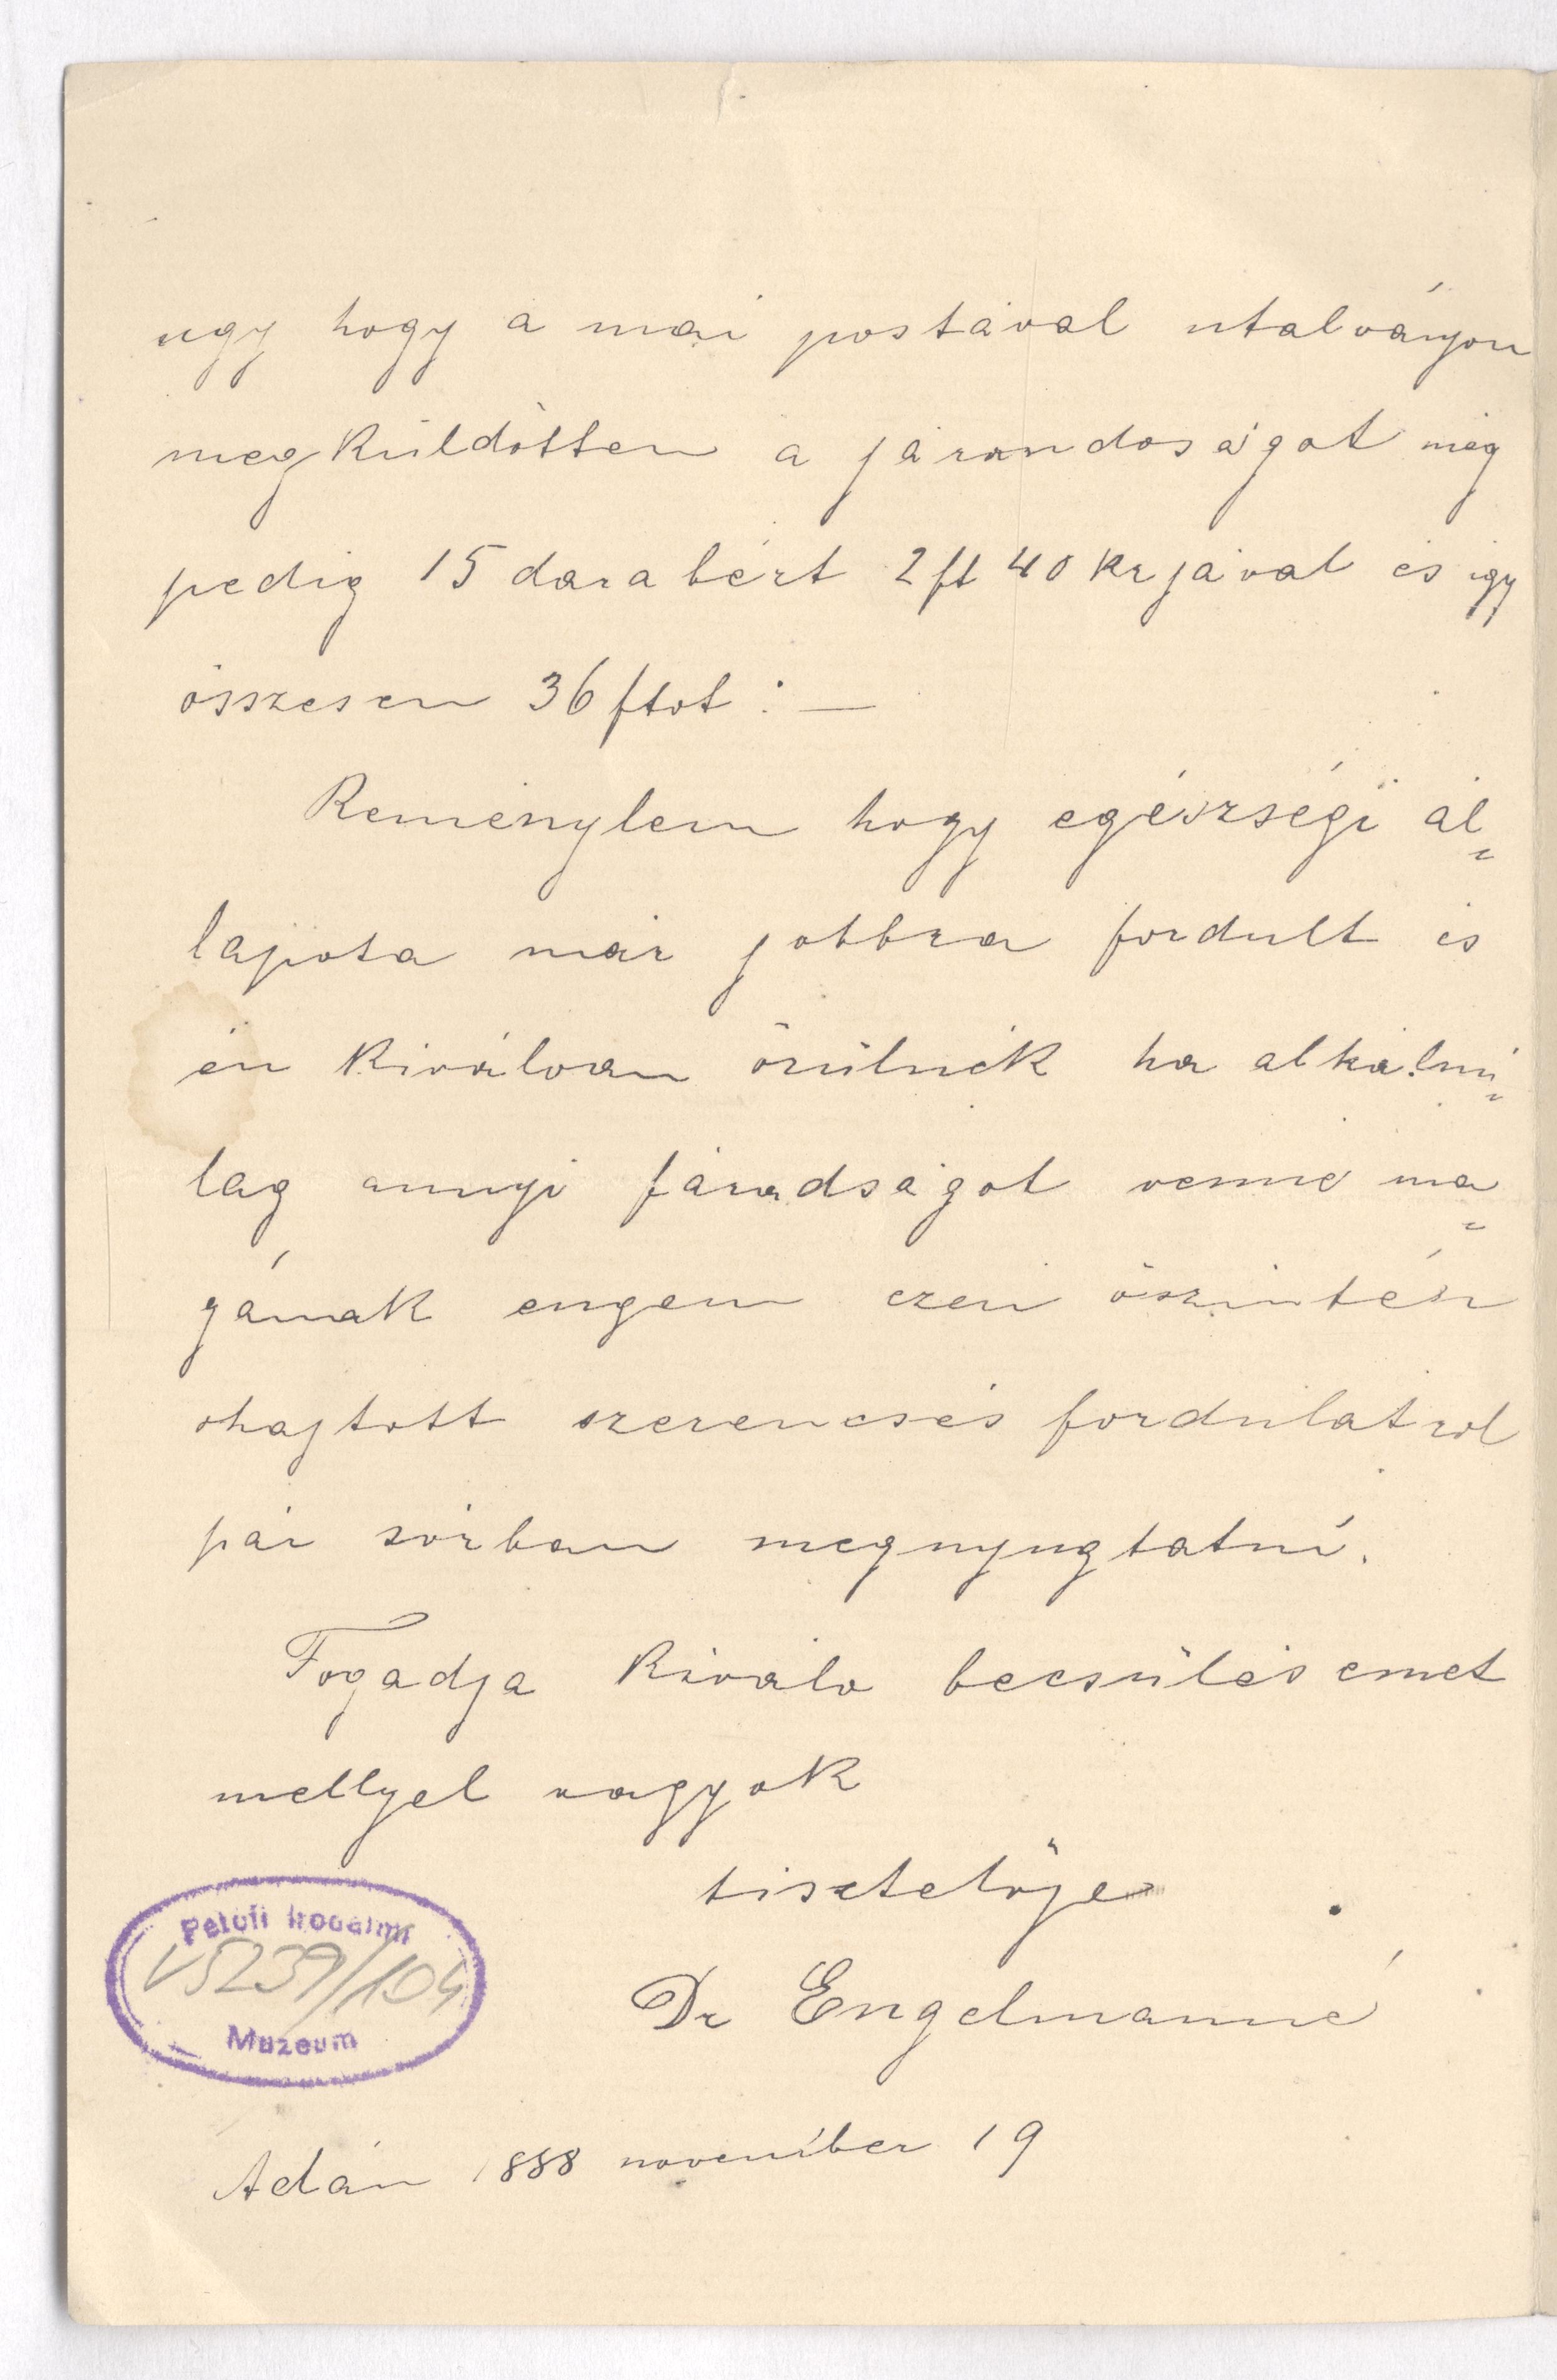 ugy hogy a mai postával utalványon
megküldöttem a járandoságot még
pedig 15 darabért 2 ft 40 krjával és igy
összesen 36 ftot : —
Reménylem hogy egészségi ál=
lapota már jobbra fordult és
én kiválóan örülnék ha alkalmi=
lag annyi fáradságot venne ma=
gának engem ezen öszintén
ohajtott szerencsés fordulatrol
pár sorban megnyugtatni.
Fogadja kiváló becsülésemet
mellyel vagyok
tisztelöje
Dr Engelmanné
Petőfi Irodalmi
V5239/104
Múzeum
Adán 1888 november 19